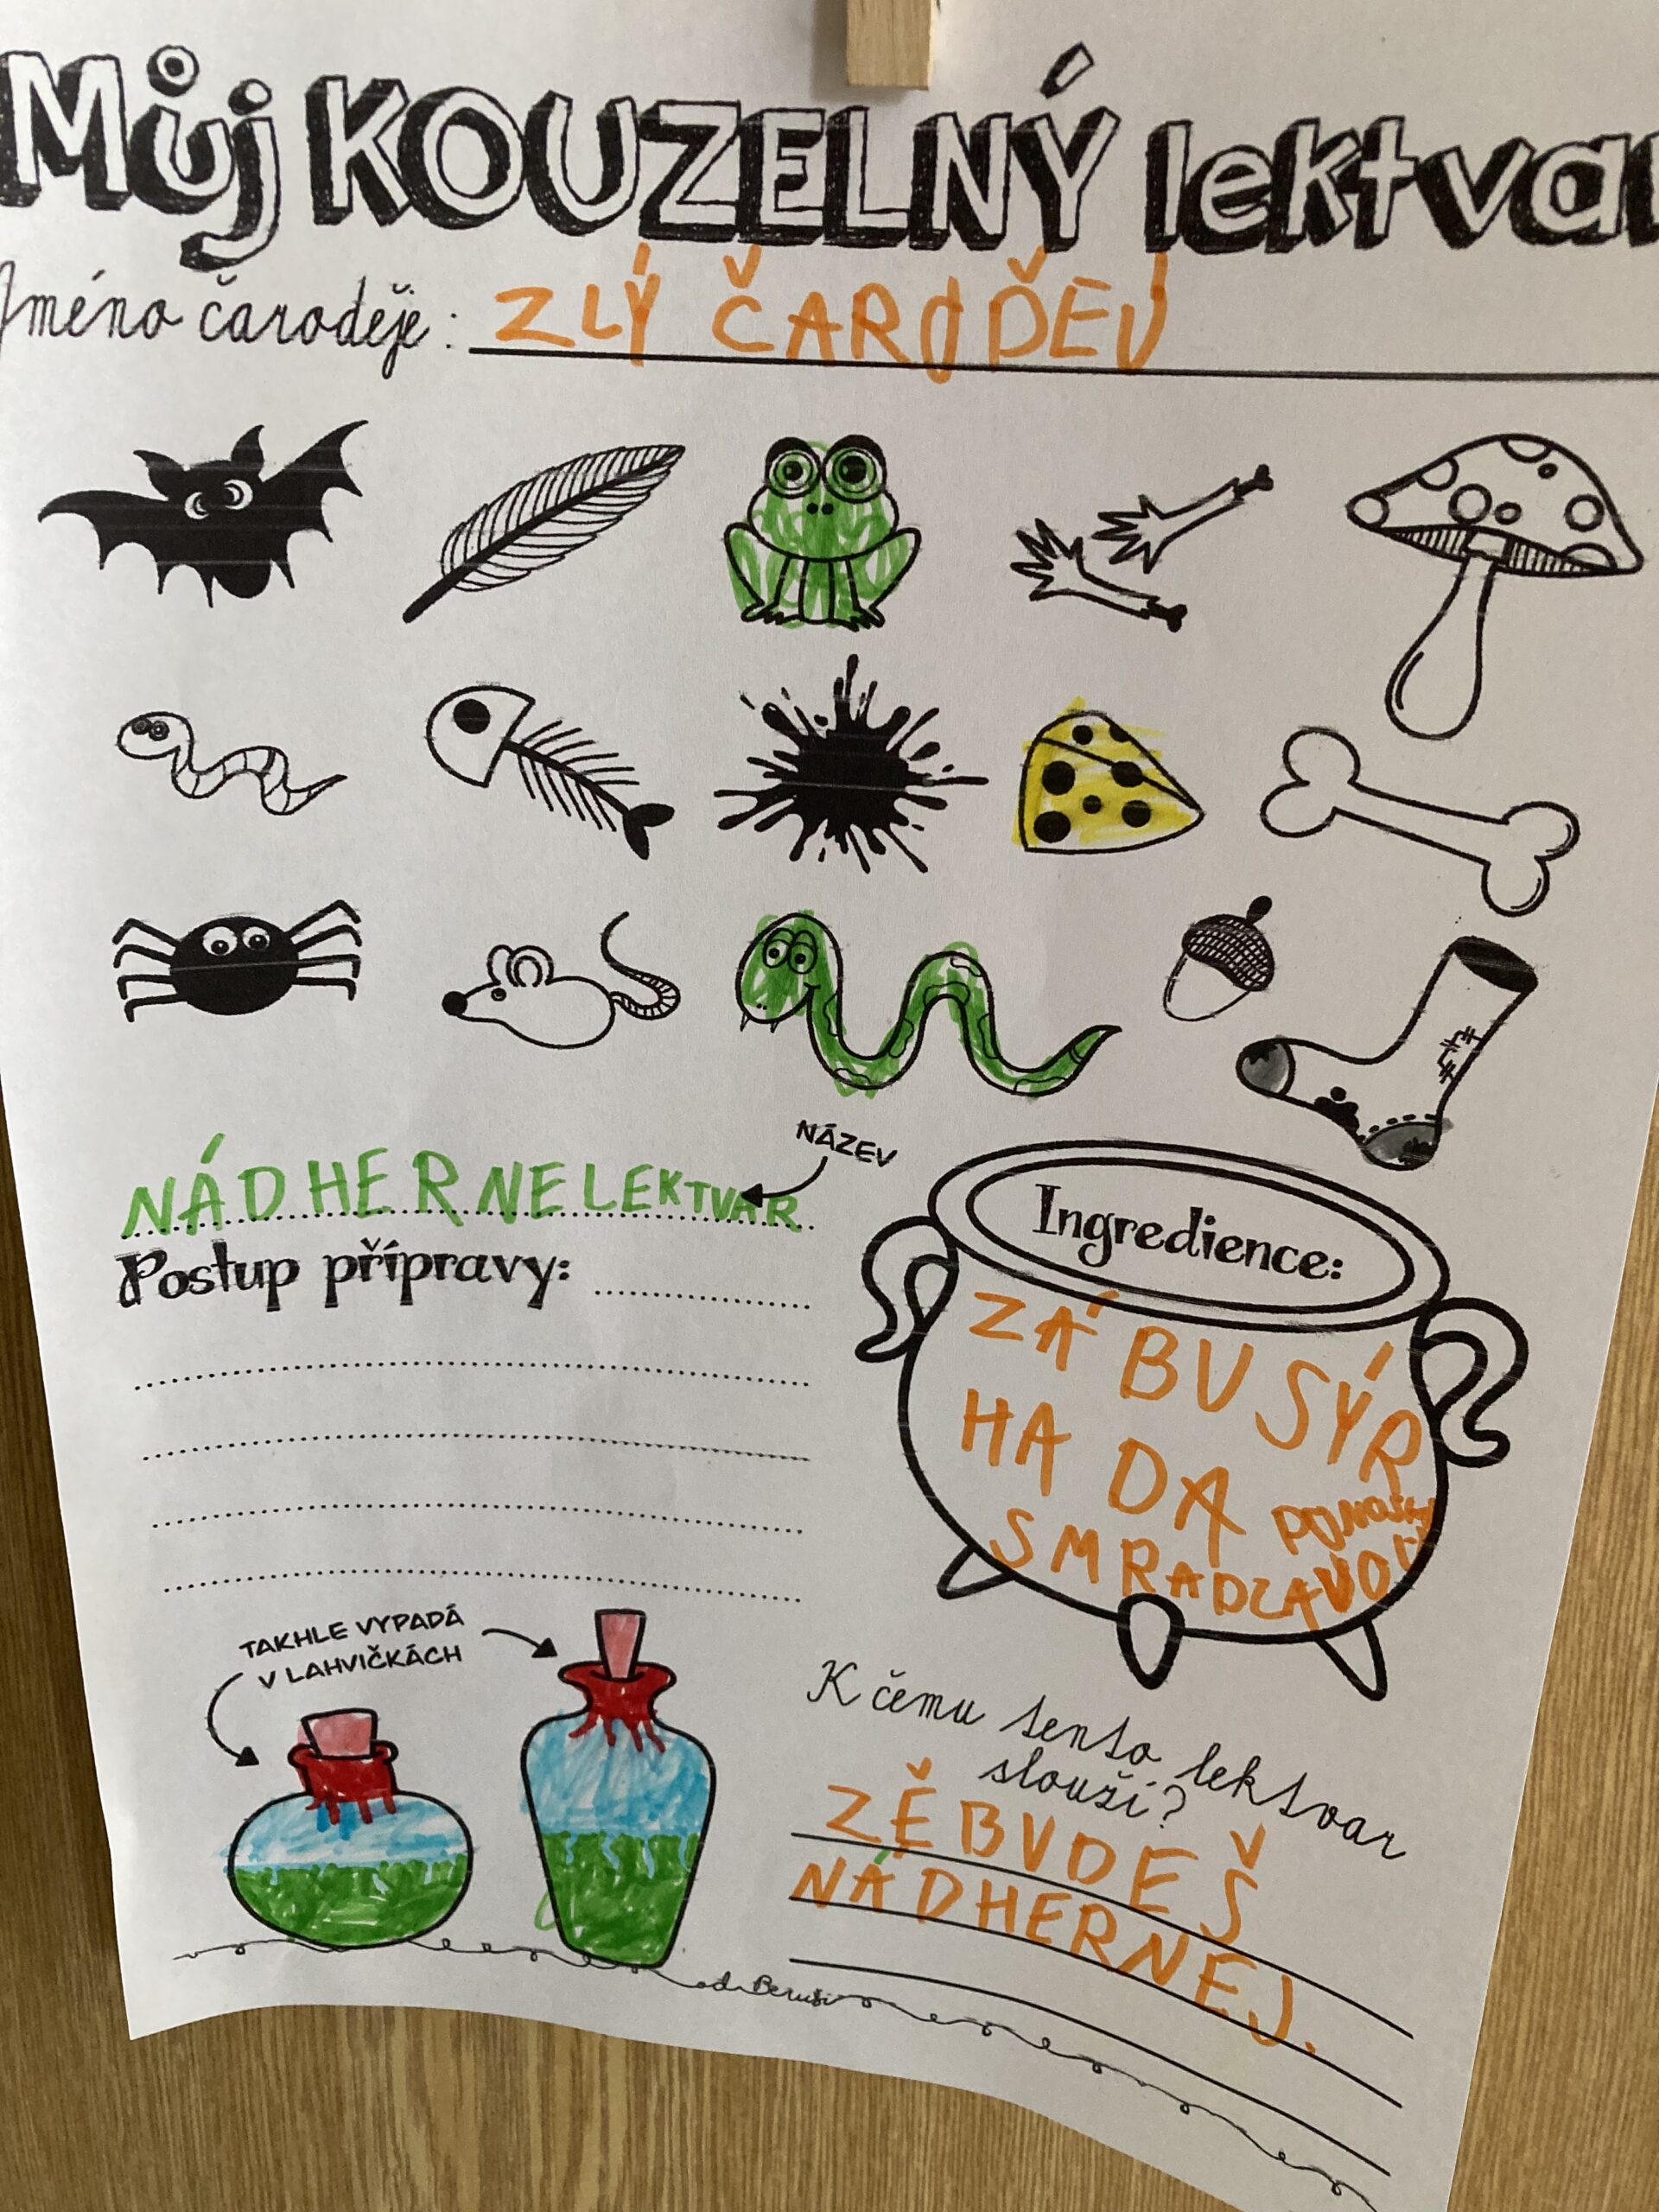 Můj KOUZELNÝ lektvar
Jméno čaroděje: ZLÝ ČARODĚJ
NÁZEV
NÁDHERNELEKTVAR
Postup přípravy:
Ingredience:
ZÁBU SÝR
HADA
SMRADLAVOU
TAKHLE VYPADÁ
V LAHVIČKÁCH
K čemu tento lektvar
slouží?
ZĚBUDEŠ
NÁDHERNEJ.
od Beruši